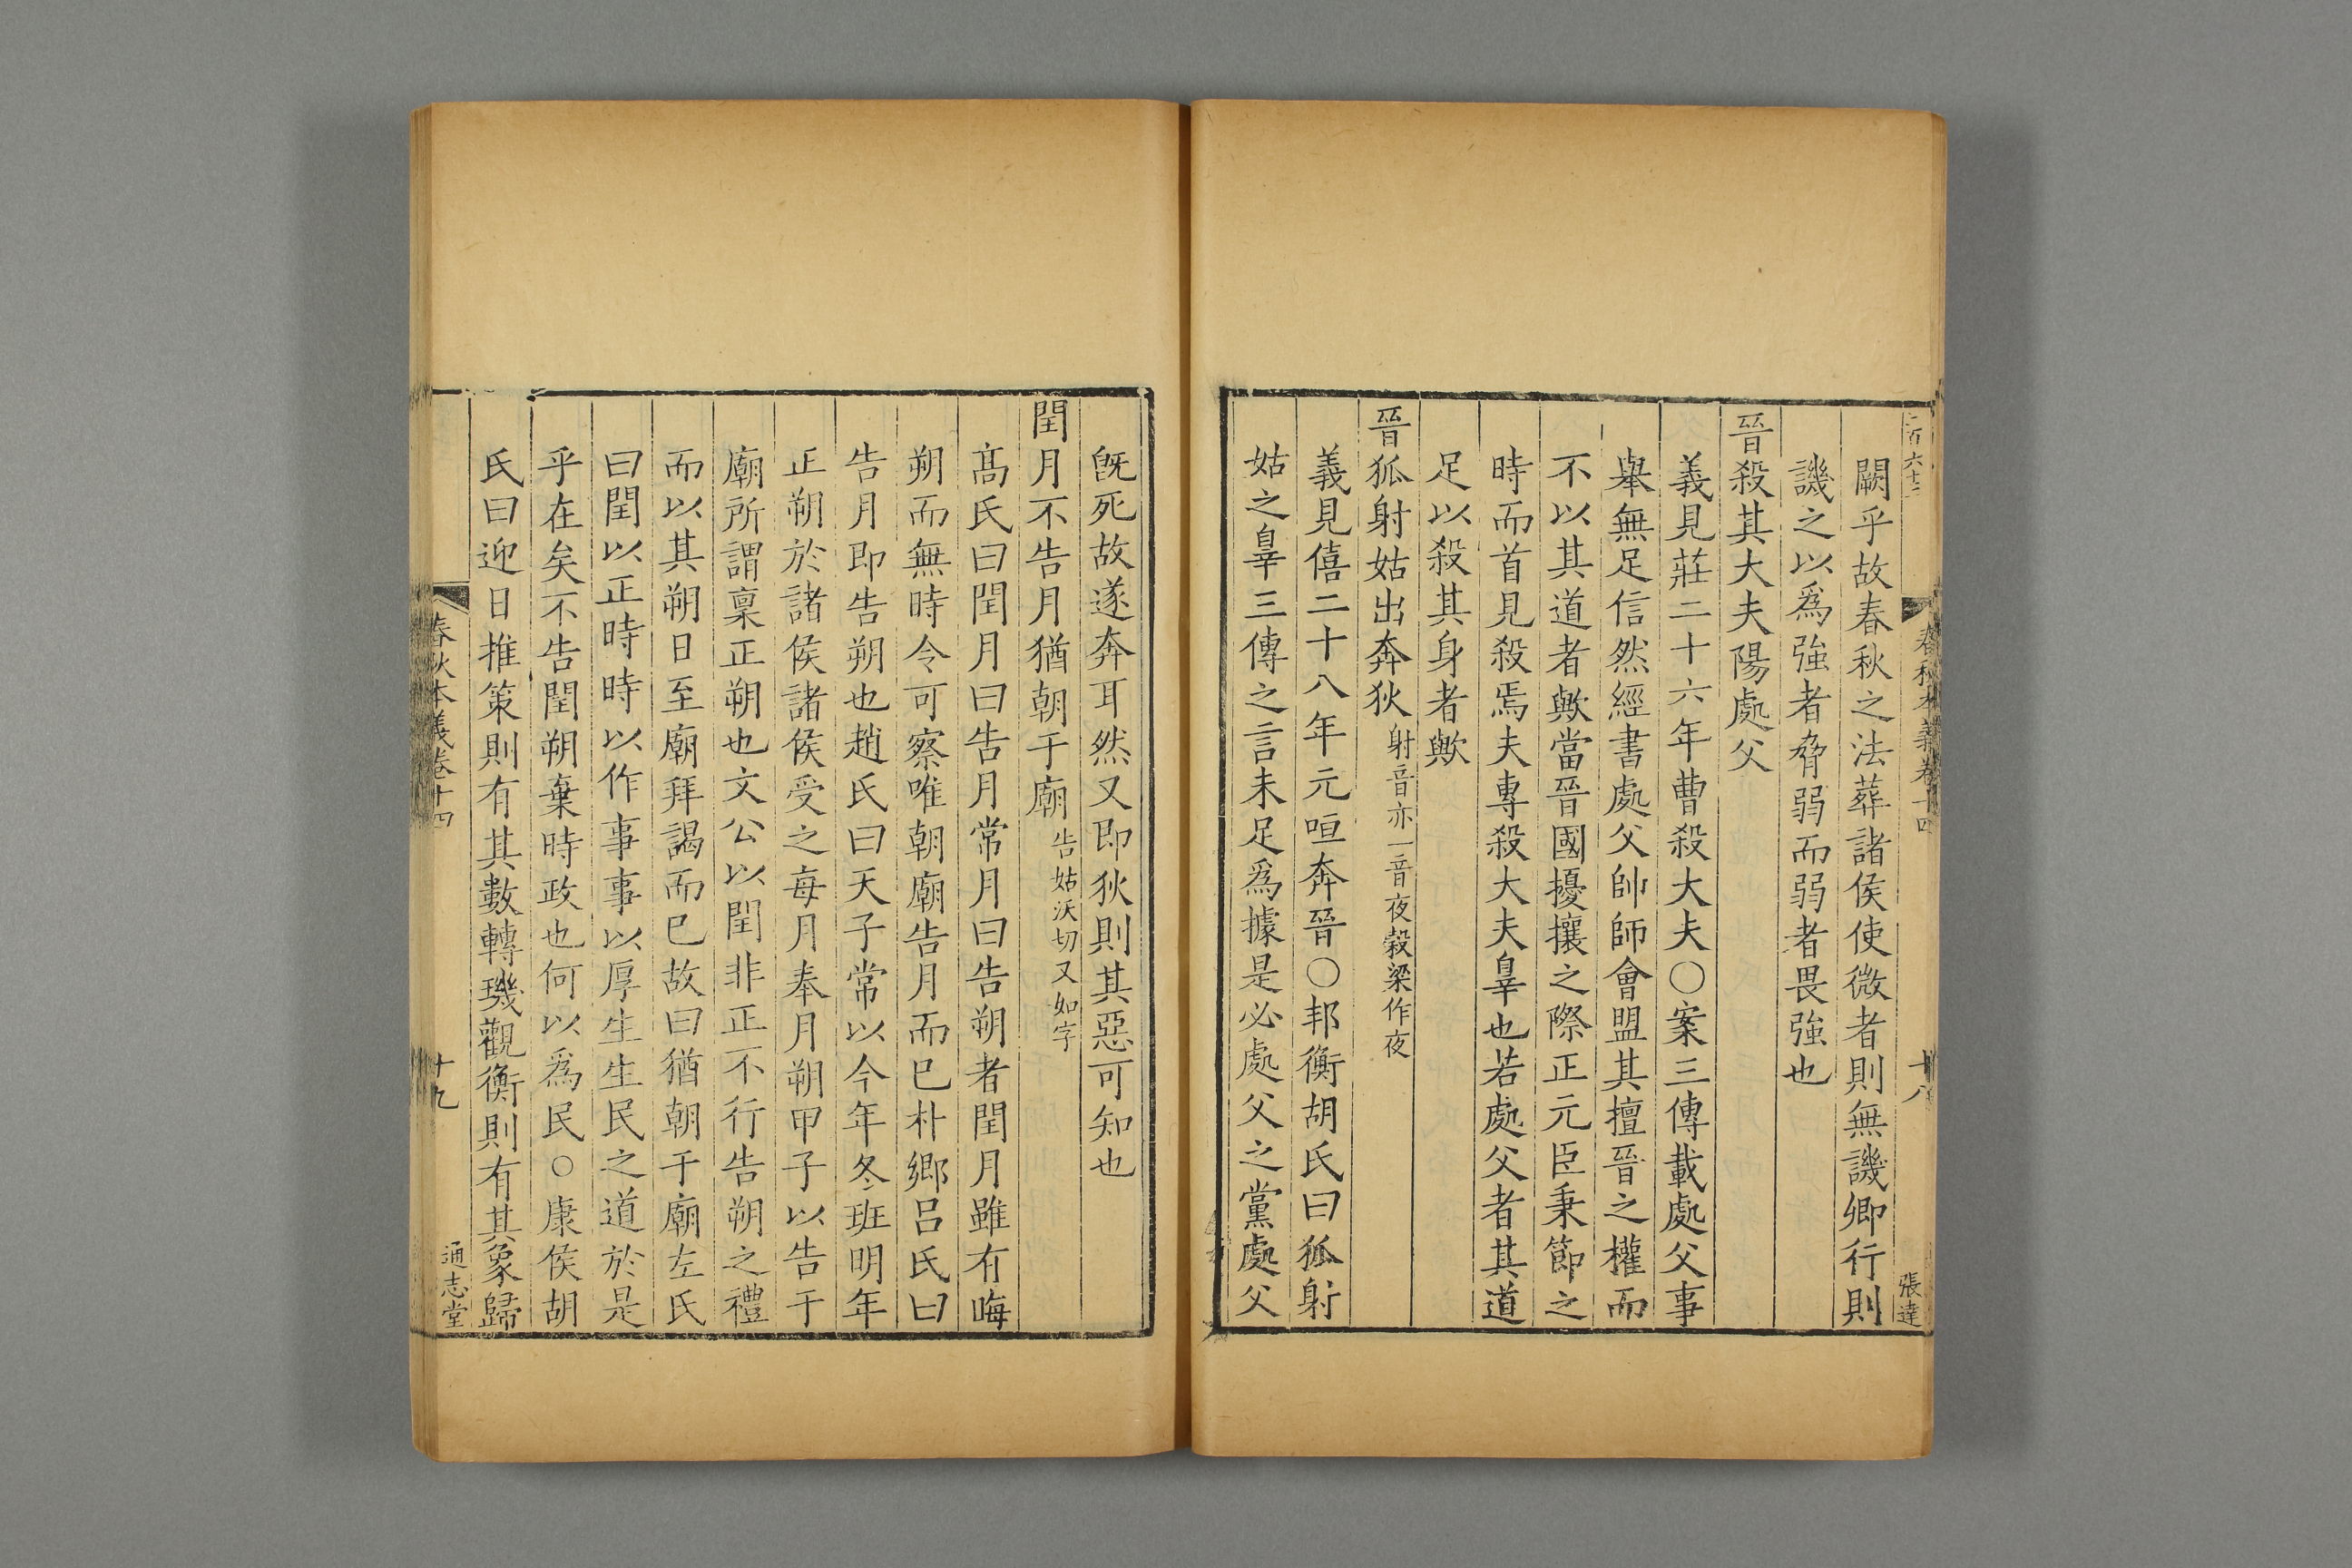 春秋本義卷十四
十八
張達
闕乎故春秋之法葬諸侯使微者則無譏卿行則
譏之以爲強者脅弱而弱者畏強也
晉殺其大夫陽處父
義見莊二十六年曹殺大夫○案三傳載處父事
舉無足信然經書處父帥師會盟其擅晉之權而
不以其道者歟當晉國擾攘之際正元臣秉節之
時而首見殺焉夫專殺大夫辠也若處父者其道
足以殺其身者歟
晉狐射姑出奔狄射音亦一音夜穀梁作夜
義見僖二十八年元咺奔晉○邦衡胡氏曰狐射
姑之辠三傳之言未足爲據是必處父之黨處父
旣死故遂奔耳然又即狄則其惡可知也
閏月不告月猶朝于廟告姑沃切又如字
髙氏曰閏月曰告月常月曰告朔者閏月雖有晦
朔而無時令可察唯朝廟告月而已朴鄉呂氏曰
告月即告朔也趙氏曰天子常以今年冬班明年
正朔於諸侯諸侯受之每月奉月朔甲子以告于
廟所謂稟正朔也文公以閏非正不行告朔之禮
而以其朔日至廟拜謁而已故曰猶朝于廟左氏
曰閏以正時時以作事事以厚生生民之道於是
乎在矣不告閏朔棄時政也何以爲民○康侯胡
氏曰迎日推策則有其數轉璣觀衡則有其象歸
春秋本義卷十四
十九
通志堂